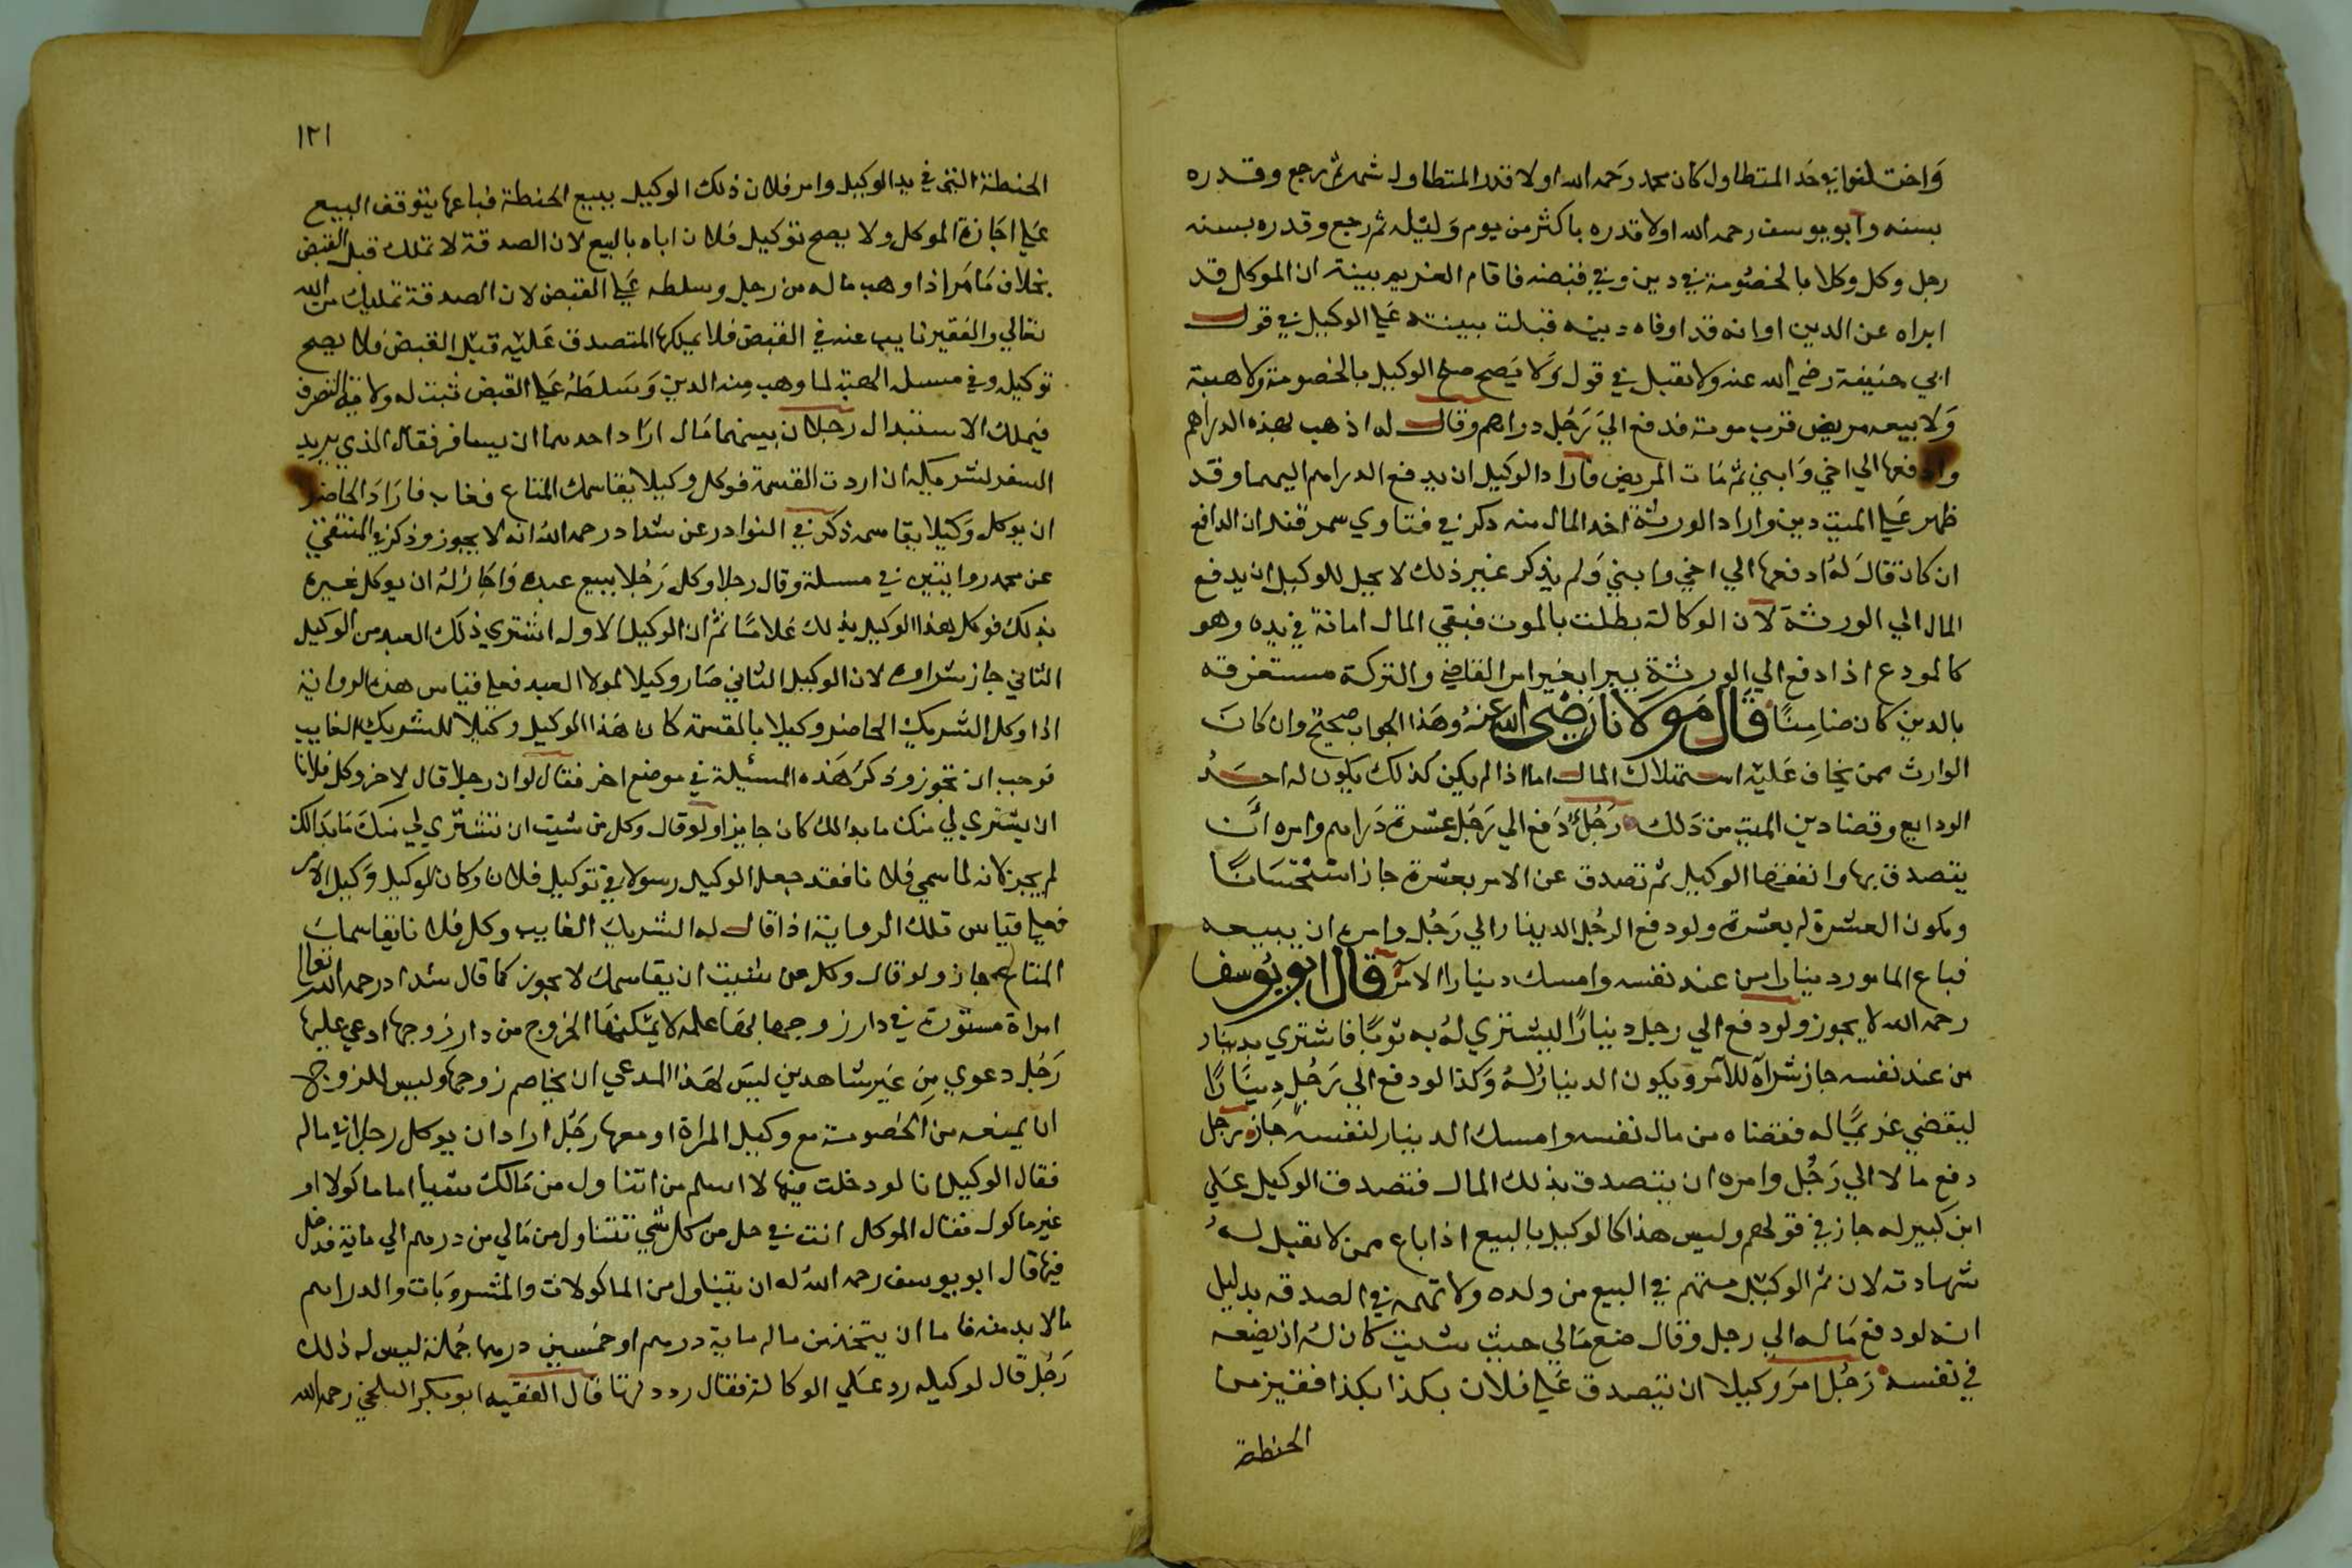 واختلفوا في حد المتطاول كان محمد رحمه الله اولا قدر المتطاول شهر ثم رجع وقدره
بسنه وابو يوسف رحمه الله اولا قدره باكثر من يوم وليله ثم رجع وقدره بسنه
رجل وكل وكلا بالخصومة في دين وفي قبضه فاقام الغريم بينة ان الموكل قد
ابراه عن الدين او انه قد اوفاه دينه قبلت بينته علي الوكيل في قول
ابي حنيفة رضي الله عنه ولا تقبل في قول ولا يصح صلح الوكيل بالخصومة ولا هبة
ولا بيعه مريض قرب موته فدفع الي رجل دراهم وقال له اذهب بهذه الدراهم
وادفعها الي اخي وابني ثم مات المريض فاراد الوكيل ان يدفع الدراهم اليهما وقد
ظهر علي الميت دين واراد الورثة اخذ المال منه ذكر في فتاوي سمرقند ان الدافع
ان كان قال له ادفعها الي اخي وابني ولم يذكر غير ذلك لا يحل للوكيل ان يدفع
المال الي الورثة لان الوكالة بطلت بالموت فبقي المال امانة في يده وهو
كالمودع اذا دفع الي الورثة بغير امر القاضي والتركة مستغرقه
بالدين كان ضامنا قال مولانا رضي الله عنه وهذا الجواب صحيح وان كان
الوارث ممن يخاف عليه استهلاك المال اما اذا لم يكن كذلك يكون له اخذ
الودايع وقضا دين الميت من ذلك رجل دفع الي رجل عشرة دراهم وامره ان
يتصدق بها وانفقها الوكيل ثم تصدق عن الامر بعشرة جاز استحسانا
ويكون العشرة له بعشرة ولو دفع الرجل الدينار الي رجل وامره ان يبيعه
فباع المامور دينارا من عند نفسه وامسك دينار الامر قال ابو يوسف
رحمه الله لا يجوز ولو دفع الي رجل دينارا ليشتري له به ثوبا فاشتري بدينار
من عند نفسه جاز شراه للآمر ويكون الدينار له وكذا لو دفع الي رجل دينارا
ليقضي غريما له فقضاه من مال نفسه وامسك الدينار لنفسه جاز رجل
دفع مالا الي رجل وامره ان يتصدق بذلك المال فتصدق الوكيل علي
ابن كبير له جاز في قولهم وليس هذا كالوكيل بالبيع اذا باع ممن لا تقبل له
شهادته لان ثم الوكيل متهم في البيع من ولده ولا تهمه في الصدقه بدليل
انه لو دفع ماله الي رجل وقال ضع مالي حيث شيت كان له ان يضعه
في نفسه رجل امر وكيلا ان يتصدق علي فلان بكذا بكذا قفيز من
الحنطة
١٢١
الحنطة التي في يد الوكيل وامر فلان ذلك الوكيل ببيع الحنطة فباعها يتوقف البيع
علي اجازة الموكل ولا يصح توكيل فلان اياه بالبيع لان الصدقة لا تملك قبل القبض
بخلاف ما مر اذا وهب ماله من رجل وسلطه علي القبض لان الصدقة تمليك من الله
تعالي والفقير نايب عنه في القبض فلا يملكها المتصدق عليه قبل القبض فلا يصح
توكيل وفي مسله الهبة لما وهب منه الدين وسلطه علي القبض ثبت له ولاية التصرف
فيملك الاستبدال رجلان بينهما مال اراد احدهما ان يسافر فقال الذي يريد
السفر لشريكه ان اردت القسمة فوكل وكيلا يقاسمك المتاع فغاب فاراد الحاضر
ان يوكل وكيلا يقاسمه ذكر في النوادر عن شداد رحمه الله انه لا يجوز وذكر في المنتقي
عن محمد روايتين في مسلة وقال رجل وكل رجلا ببيع عبده واجاز له ان يوكل غيره
بذلك فوكل هذا الوكيل بذلك غلاما ثم ان الوكيل الاول اشتري ذلك العبد من الوكيل
الثاني جاز شراوه لان الوكيل الثاني صار وكيلا لمولا العبد فعلي قياس هذه الرواية
اذا وكل الشريك الحاضر وكيلا بالقسمة كان هذا الوكيل وكيلا للشريك الغايب
فوجب ان تجوز وذكر هذه المسئلة في موضع اخر فقال لو ان رجلا قال لاخر وكل فلانا
ان يشتري لي منك ما بدا لك كان جايزا ولو قال وكل من شيت ان تشتري لي منك ما بدا لك
لم يجز لانه لما سمي فلانا فقد جعل الوكيل رسولا في توكيل فلان وكان الوكيل وكيل الامر
فعلي قياس تلك الرواية اذا قال له الشريك الغايب وكل فلانا يقاسمك
المتاع جاز ولو قال وكل من شيت ان يقاسمك لا يجوز كما قال شداد رحمه الله تعالي
امراة مستورة في دار زوجها لا يمكنها الخروج من دار زوجها ادعي عليها
رجل دعوي من غير شاهدين ليس لهذا المدعي ان يخاصم زوجها وليس للزوج
ان يمنعه من الخصومة مع وكيل المراة او معها رجل اراد ان يوكل رجلا في ماله
فقال الوكيل انا لو دخلت فيها لا اسلم من اتناول من مالك شيا اما ماكولا او
غير ماكول فقال الموكل انت في حل من كل شي تتناول من مالي من درهم الي ماية فدخل
فيها قال ابو يوسف رحمه الله له ان يتناول من الماكولات والمشروبات والدراهم
ما لا بد منه فاما ان يتخذ من ماله ماية درهم او خمسين درهما جملة ليس له ذلك
رجل قال لوكيله رد علي الوكالة فقال رددتها قال الفقيه ابو بكر البلخي رحمه الله